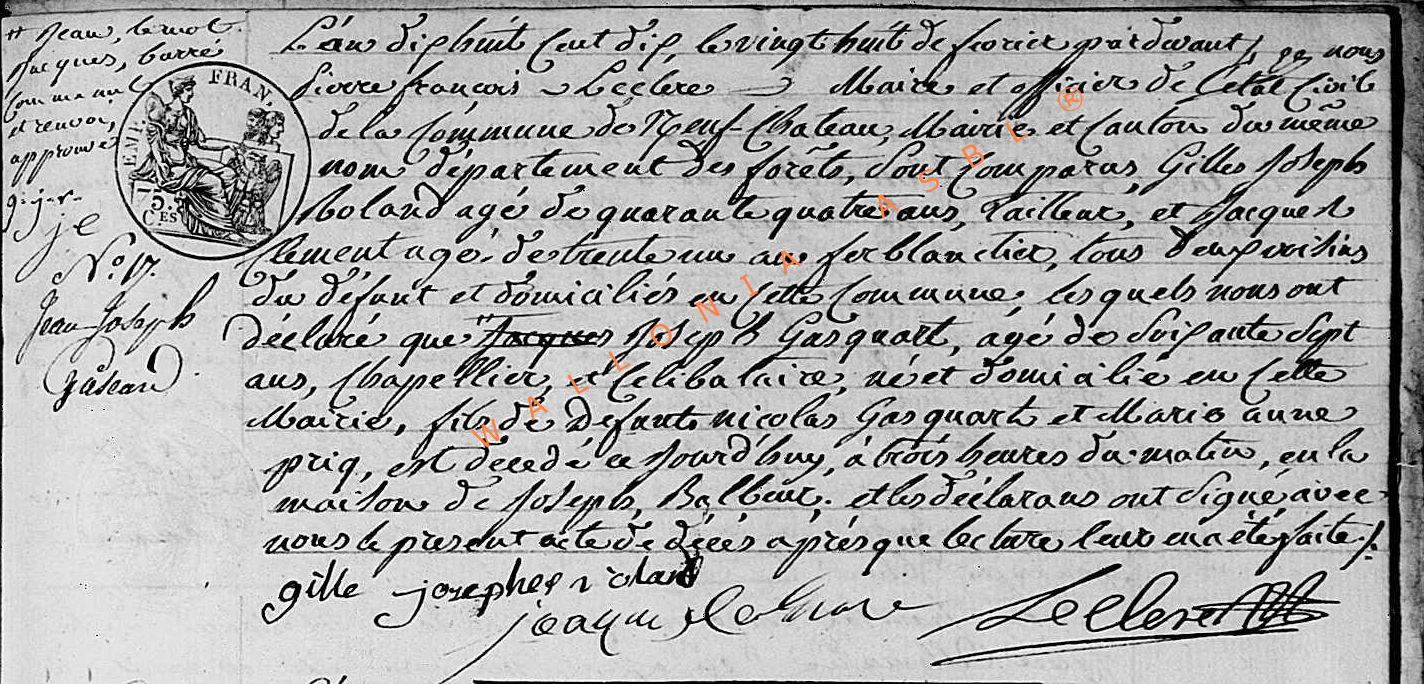 # Jean, le mot
Jacques, barré
comme nul
et renvoi,
approuvé
g. j. r.
je
EMP. FRAN.
75.
C.ES
N.o 17.
Jean-Joseph
L'an dix huit cent dix, le vingt huit de fevrier pardevant nous
Pierre françois Leclere Maire et officier de l'etat Civil
de la Commune de Neuf-Chateau, Mairie et Canton du même
nom département des forêts, sont Comparus, Gilles Joseph
Roland agé de quarante quatre ans, Tailleur, et Jacques
Clement agé de trente un ans ferblantier, tous deux voisins
du défunt et domiciliés en cette Commune, lesquels nous ont
déclaré que # Jacques Joseph Gasquart, agé de Soixante Sept
ans, Chapellier, et Celibataire, né et domicilié en Cette
Mairie, fils de Defunts nicolas Gasquart et Marie anne
priq, est décédé ce Jourd'huy, à trois heures du matin, en la
maison de Joseph, Balbeur, et les déclarans ont Signé avec
nous le present acte de décès après que lecture leur en a été faite ./.
gille josephe roland
Leclere
WALLONIA ASBL ®